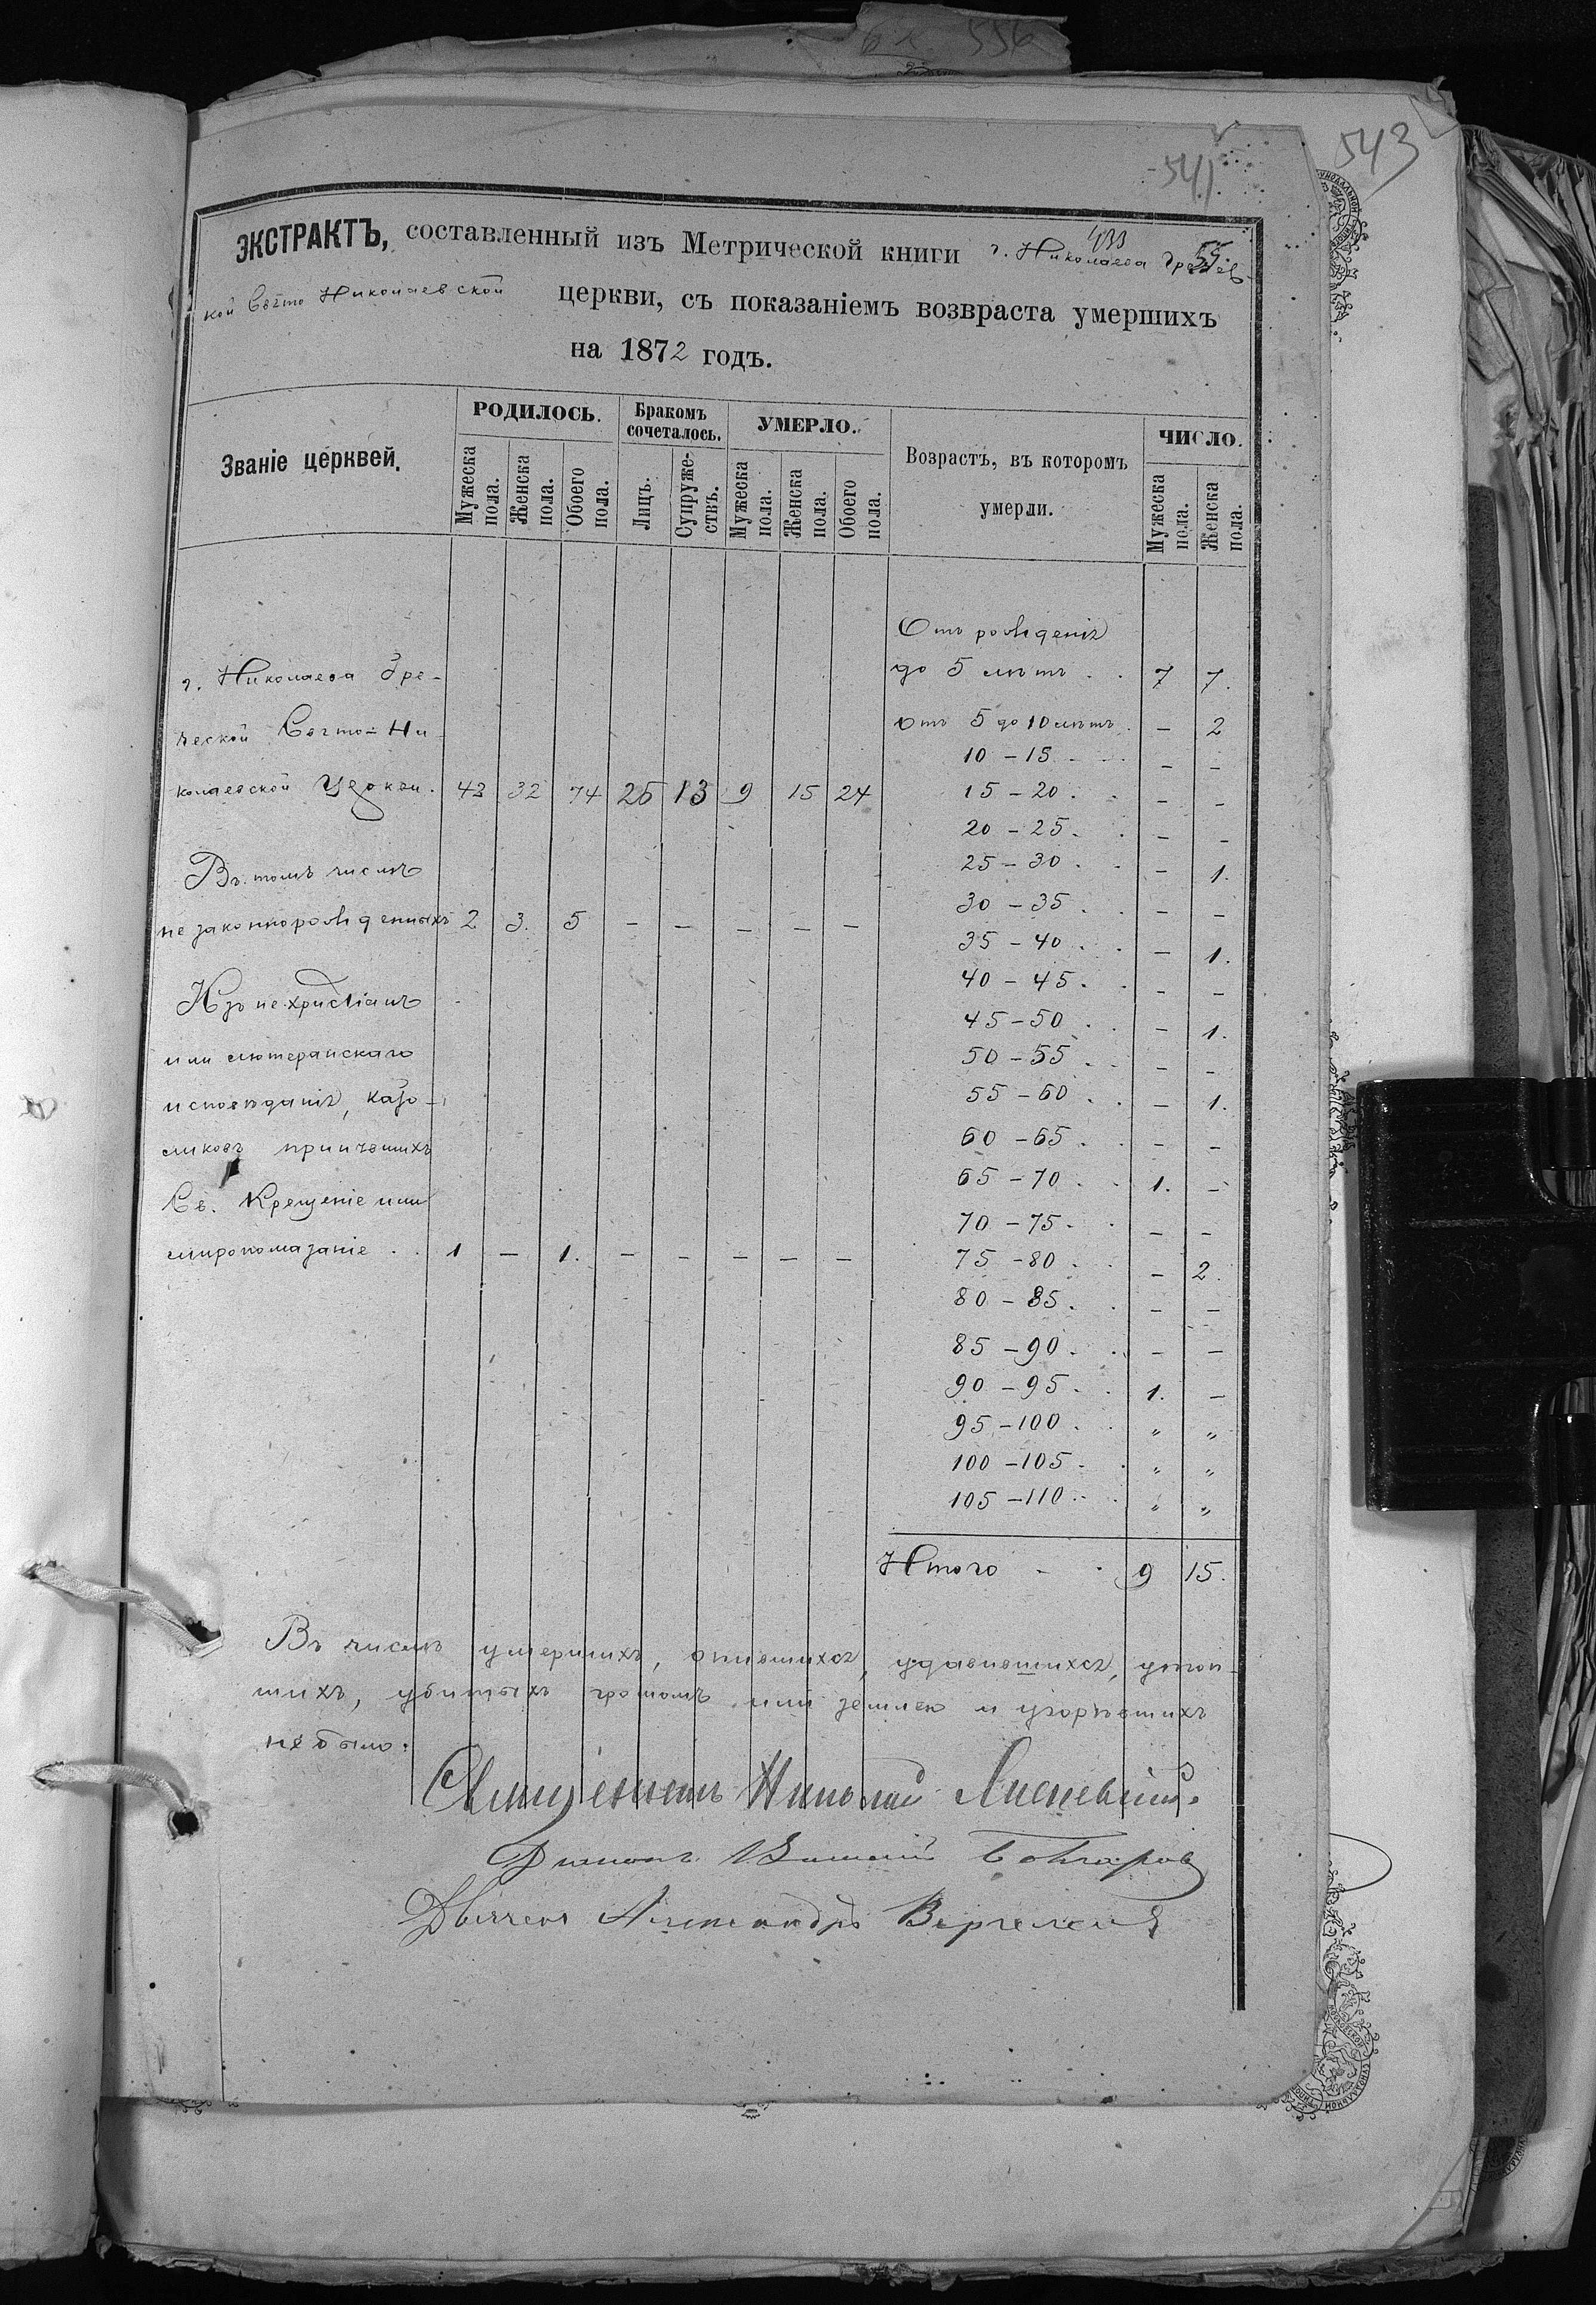 543
541
ЭКСТРАКТЪ, составленный изъ Метрической книги г. Николаева Гречес-
кой Свято Николаевской церкви, съ показаніемъ возвраста умершихъ
на 1872 годъ.
Званіе церквей. РОДИЛОСЬ. Бракомъ сочеталось. УМЕРЛО. Возрастъ, въ которомъ умерли. ЧИСЛО.
Мужеска пола. Женска пола. Обоего пола. Лицъ. Супруже-ствъ. Мужеска пола. Женска пола. Обоего пола. Мужеска пола. Женска пола.
Отъ рожденія
г. Николаева Гре- до 5 лѣтъ . . 7 7.
ческой Свято-Ни- Отъ 5 до 10 лѣтъ . – 2
10 – 15 – –
колаевской Церкви. 42 32 74 26 13 9 15 24 15 – 20 . . – –
20 – 25 . . – –
Въ томъ числѣ 25 – 30 . . – 1.
незаконнорожденныхъ 2 3. 5 – – – – – 30 – 35 . . – –
35 – 40 . . – 1.
Изъ нехристіанъ 40 – 45 . . – –
45 – 50 . . – 1.
или лютеранскаго 50 – 55 . . – –
исповѣданія, като- 55 – 60 . . – 1.
ликовъ принявшихъ 60 – 65 . . – –
Св. Крещеніе или 65 – 70 . . 1. –
70 – 75 . . – –
миропомазаніе . . 1 – 1. – – – – – 75 – 80 . . – 2.
80 – 85 . . – –
85 – 90 . . – –
90 – 95 . . 1. –
95 – 100 . . „ „
100 – 105 . . „ „
105 – 110 . . „ „
Итого – . 9 15.
Въ числѣ умершихъ, опившихся, удавившихся, утоп-
шихъ, убитыхъ громомъ или землею и угорѣвшихъ
не было.
Священникъ Николай
Діаконъ Василій
Дьячекъ Александръ